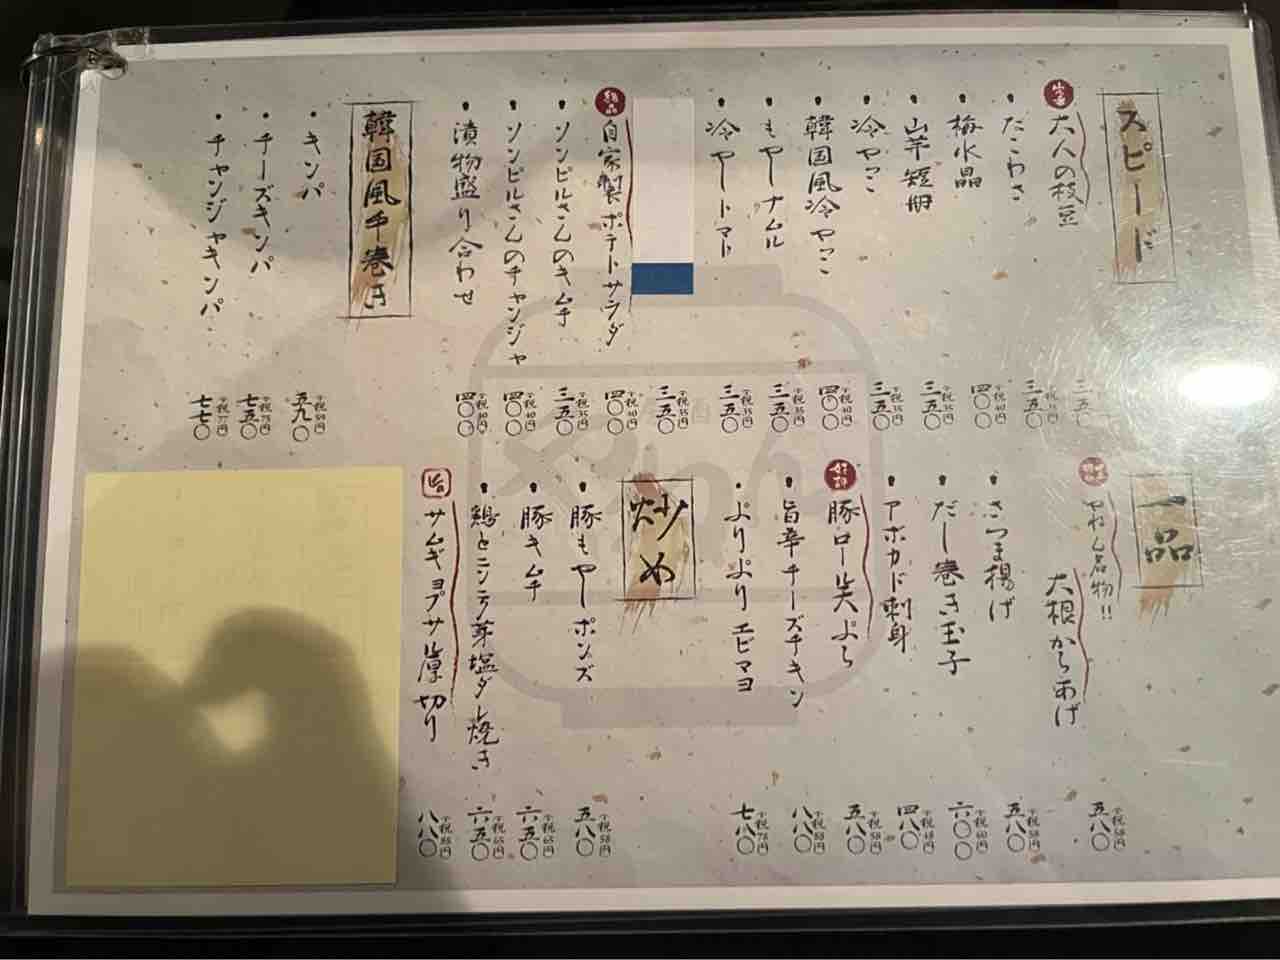 スピード
大人の枝豆
・たこわさ
・梅水晶
・山芋短冊
・冷やっこ
・韓国風冷やっこ
・もやしナムル
・冷やしトマト
絶品
自家製ポテトサラダ
・ソンピルさんのキムチ
・ソンピルさんのチャンジャ
・漬物盛り合わせ
韓国風手巻き
・キンパ
・チーズキンパ
・チャンジャキンパ
三五〇
三五〇
四〇〇
三五〇
三五〇
四〇〇
三五〇
三五〇
三五〇
四〇〇
三五〇
四〇〇
四〇〇
五九〇
七五〇
七七〇
一品
やねん名物!!
大根からあげ
・さつま揚げ
・だし巻き玉子
・アボカド刺身
好評
豚ロール天ぷら
・旨辛チーズチキン
・ぷりぷりエビマヨ
炒め
・豚もやしポンズ
・豚キムチ
・鶏とニンニク芽塩ダレ焼き
旨
サムギョプサル厚切り
五八〇
五八〇
六〇〇
四八〇
五八〇
八八〇
七八〇
五八〇
六五〇
六五〇
八八〇